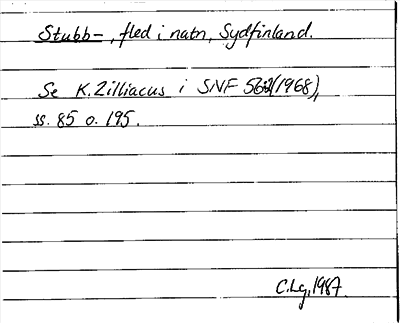 Stubb-, fled i natn, Sydfinland.
Se K. Zilliacus i SNF 56 (1968),
ss. 85 o. 195.
C.Lg, 1987.